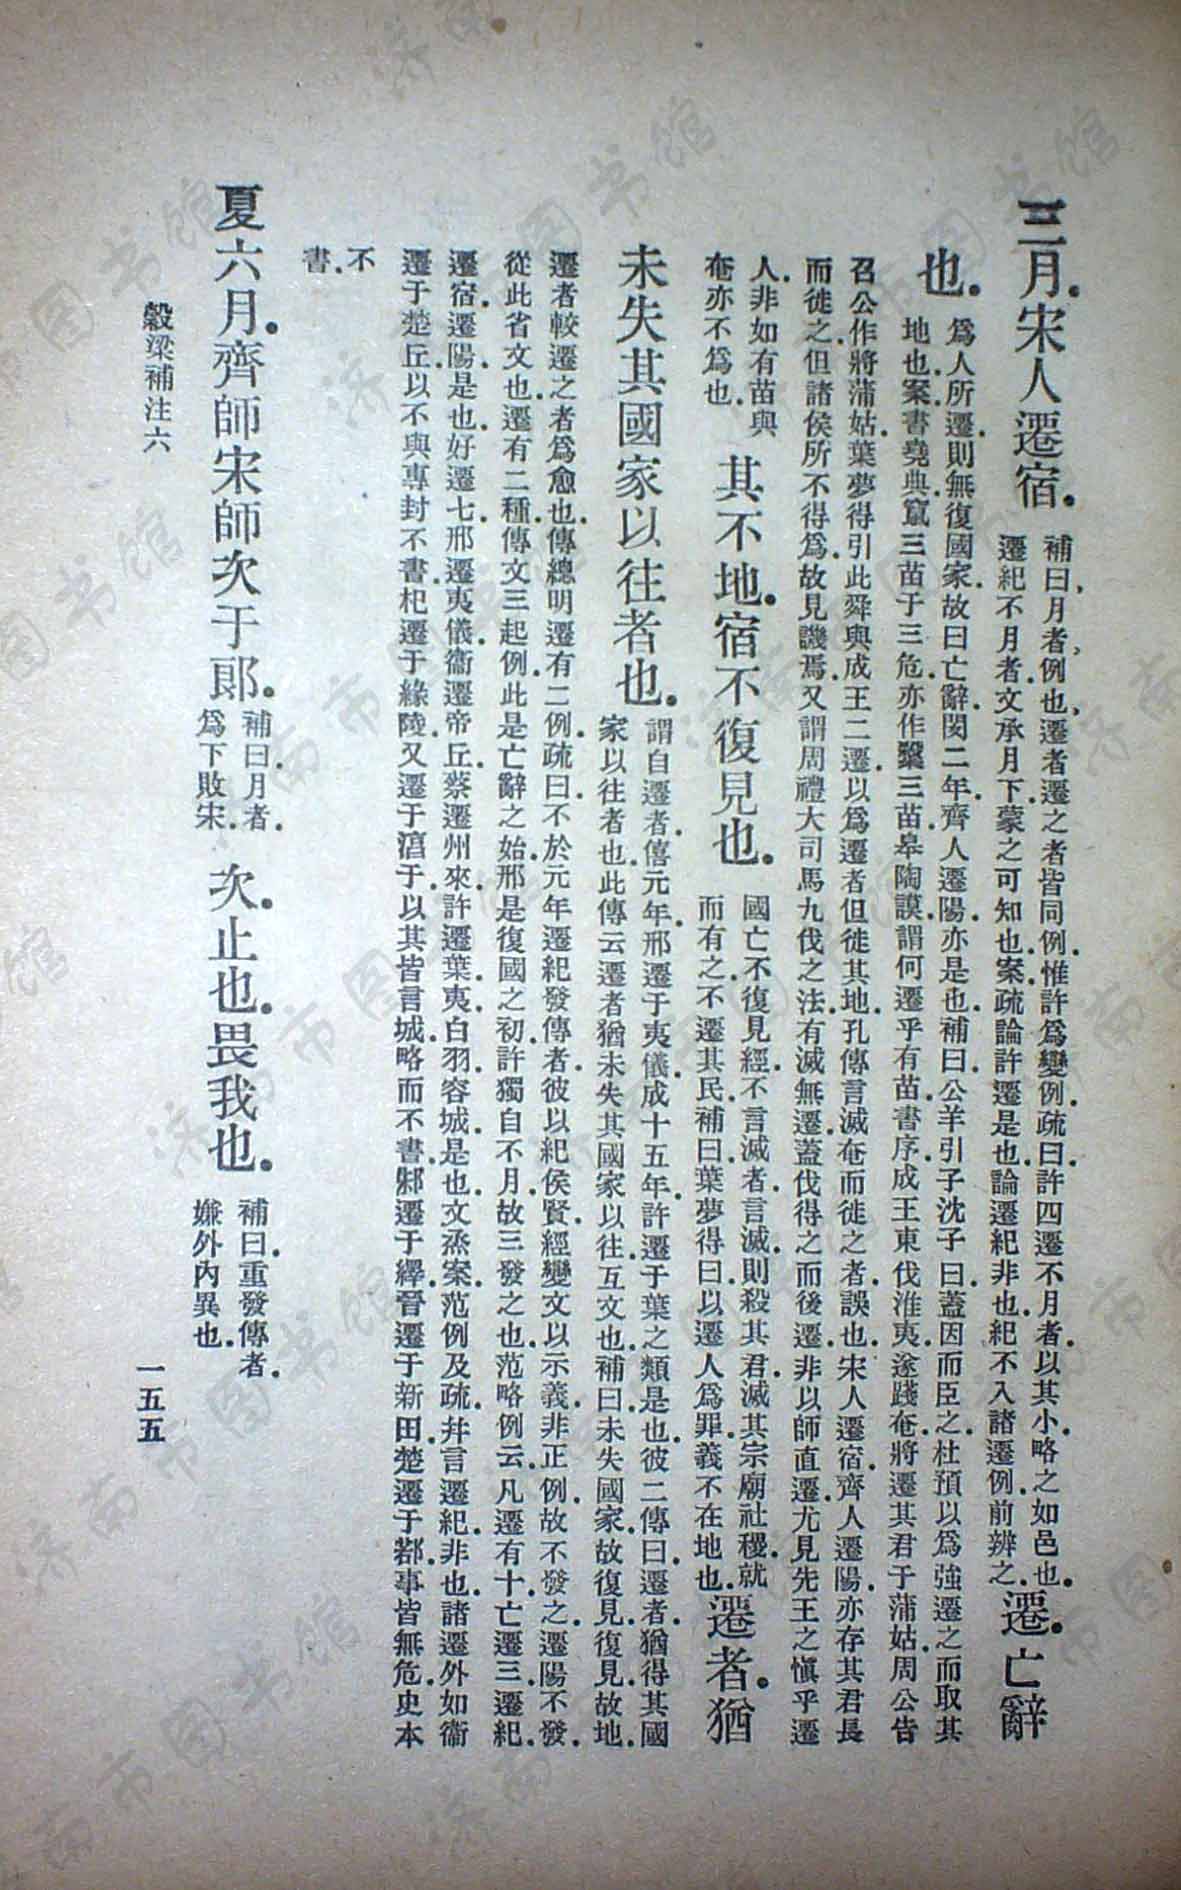 三月.宋人遷宿.
補曰.月者.例也.遷者遷之者皆同例.惟許爲變例.疏曰.許四遷不月者.以其小略之如邑也.
遷紀不月者.文承月下.蒙之可知也.案疏論許遷是也.論遷紀非也.紀不入諸遷例.前辨之.
遷.亡辭
也.
爲人所遷.則無復國家.故曰亡辭.閔二年.齊人遷陽.亦是也.補曰.公羊引子沈子曰.蓋因而臣之.杜預以爲強遷之而取其
地也.案書堯典.竄三苗于三危.亦作𥨥三苗.皋陶謨.謂何遷乎有苗.書序.成王東伐淮夷.遂踐奄.將遷其君于蒲姑.周公告
召公作將蒲姑.葉夢得引此舜與成王二遷.以爲遷者但徙其地.孔傳言滅奄而徙之者.誤也.宋人遷宿.齊人遷陽.亦存其君長
而徙之.但諸侯所不得爲.故見譏焉.又謂周禮大司馬九伐之法.有滅無遷.蓋伐得之而後遷.非以師直遷.尤見先王之愼乎遷
人.非如有苗與
奄亦不爲也.
其不地.宿不復見也.
國亡不復見經.不言滅者.言滅.則殺其君.滅其宗廟社稷.就
而有之.不遷其民.補曰.葉夢得曰.以遷人爲罪.義不在地也.
遷者.猶
未失其國家以往者也.
謂自遷者.僖元年.邢遷于夷儀.成十五年.許遷于葉之類是也.彼二傳曰.遷者.猶得其國
家以往者也.此傳云.遷者猶未失其國家以往.互文也.補曰.未失國家.故復見.復見.故地.
遷者較遷之者爲愈也.傳總明遷有二例.疏曰.不於元年遷紀發傳者.彼以紀侯賢.經變文以示義.非正例.故不發之.遷陽不發.
從此省文也.遷有二種.傳文三起例.此是亡辭之始.邢是復國之初.許獨自不月.故三發之也.范略例云.凡遷有十.亡遷三.遷紀.
遷宿.遷陽是也.好遷七.邢遷夷儀.衞遷帝丘.蔡遷州來.許遷葉.夷.白羽.容城.是也.文烝案.范例及疏.幷言遷紀.非也.諸遷外.如衞
遷于楚丘.以不與專封不書.杞遷于緣陵.又遷于淳于.以其皆言城.略而不書.邾遷于繹.晉遷于新田.楚遷于鄀.事皆無危.史本
不
書.
夏六月.齊師宋師次于郞.
補曰.月者.
爲下敗宋.
次.止也.畏我也.
補曰.重發傳者.
嫌外內異也.
穀梁補注六
一五五